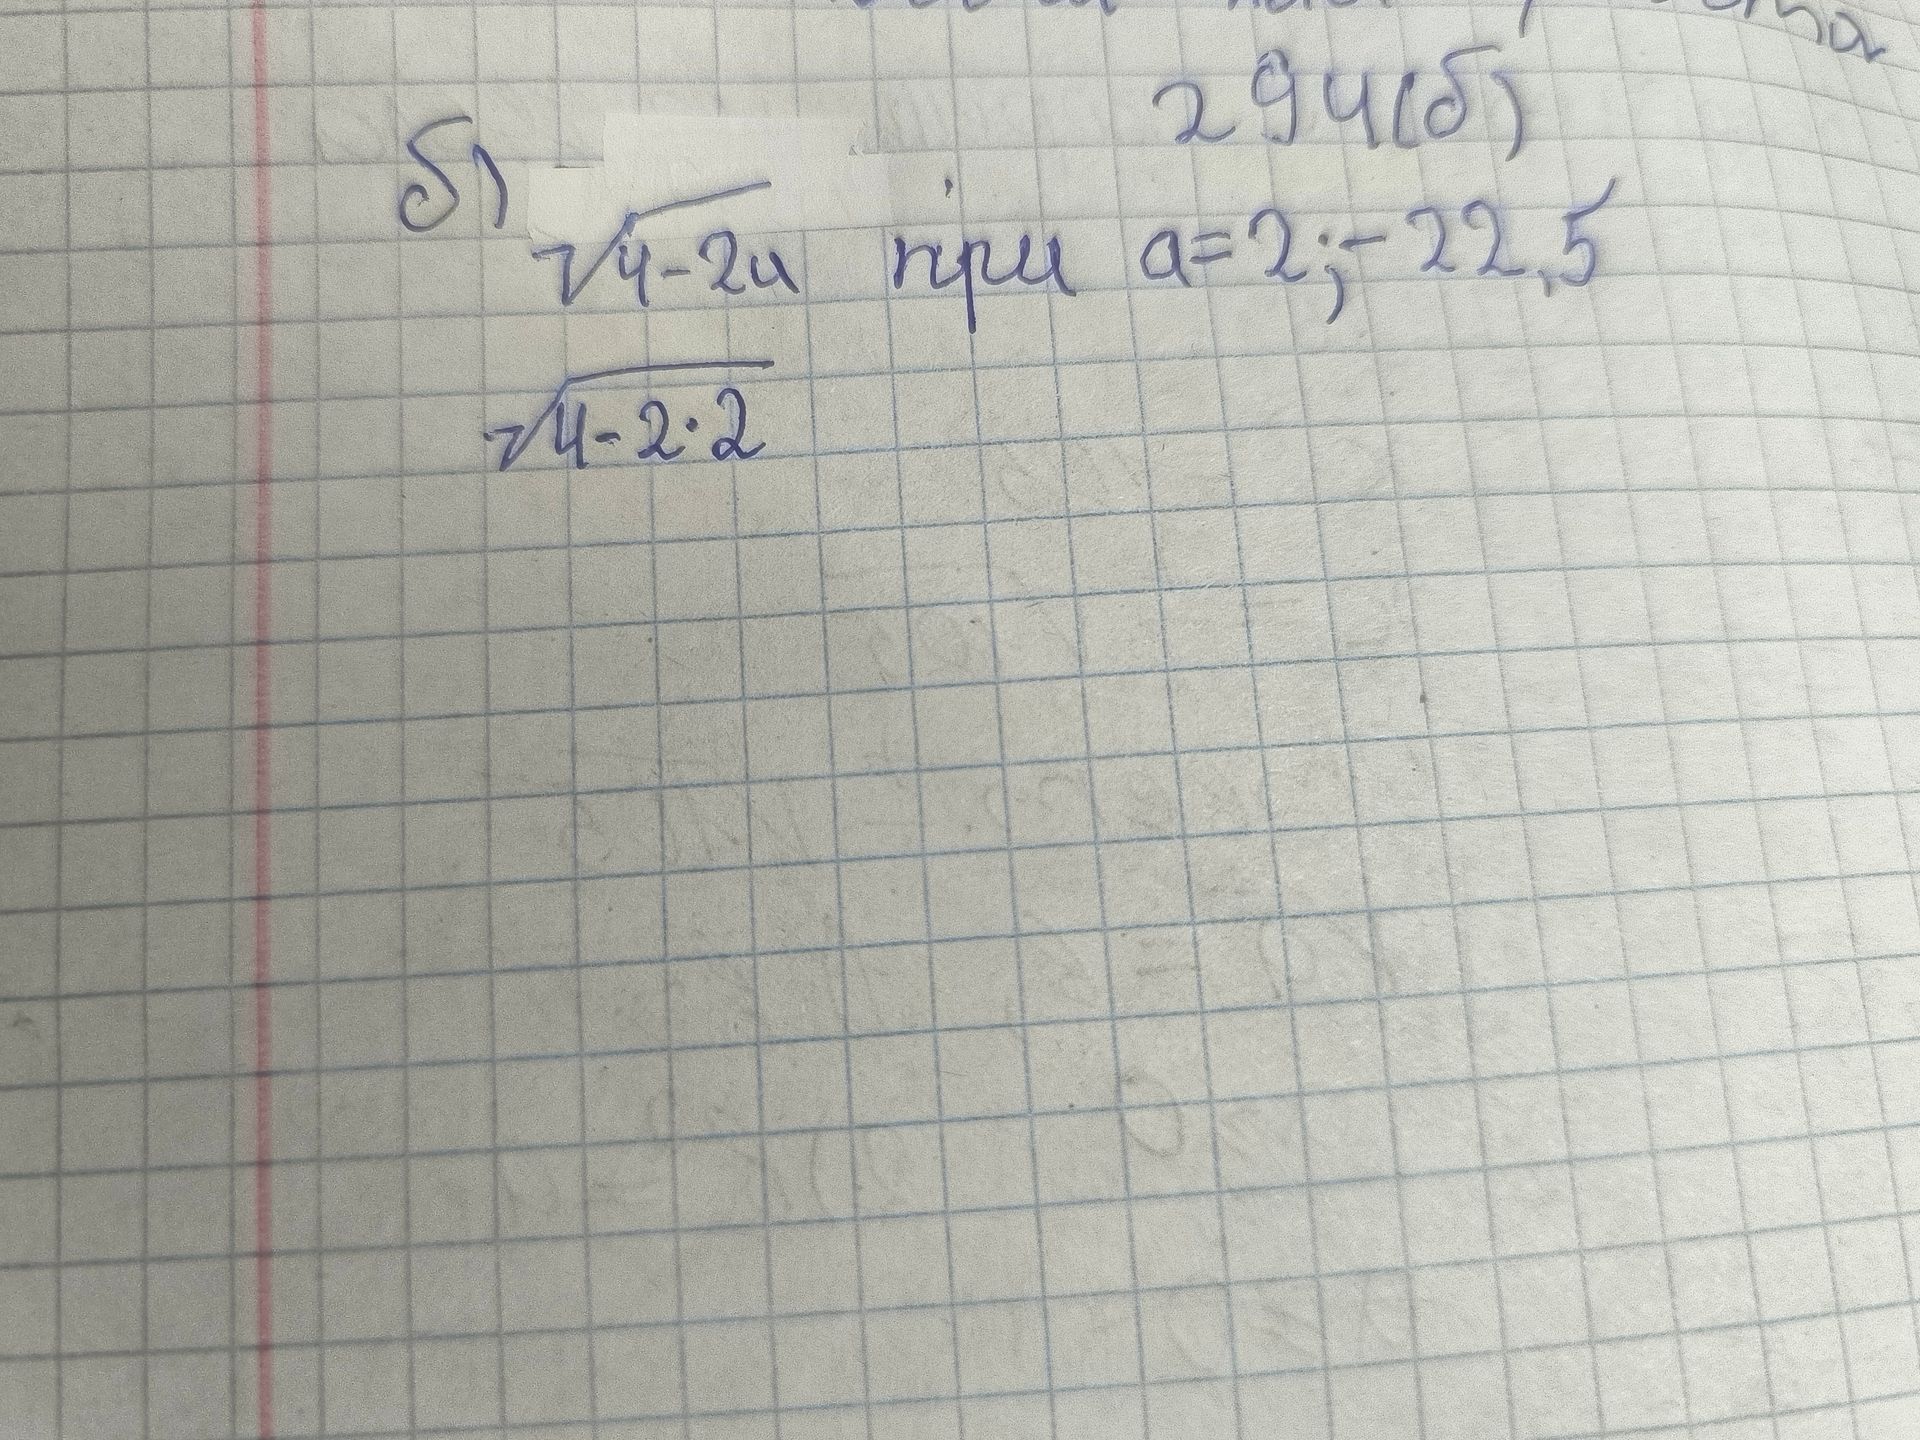 294(б)
б) √4-2a при a=2;-22,5
√4-2·2